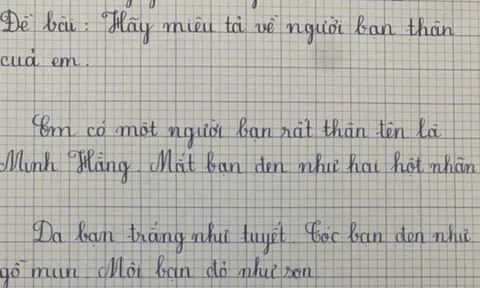 Đề bài : Hãy miêu tả về người bạn thân
cuả em.
Em có một người bạn rất thân tên là
Minh Hằng. Mắt bạn đen như hai hột nhãn
Da bạn trắng như tuyết. Tóc bạn đen như
gỗ mun. Môi bạn đỏ như son